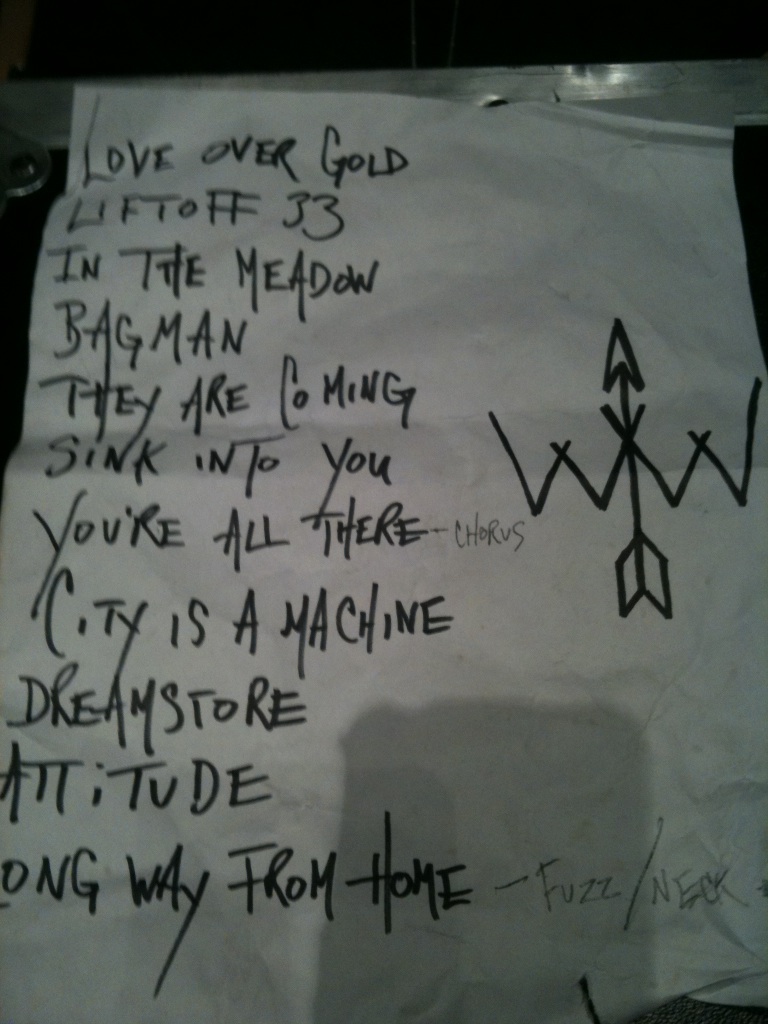 LOVE OVER GOLD
LIFTOFF 33
IN THE MEADOW
BAGMAN
THEY ARE COMING
SINK INTO YOU
YOU'RE ALL THERE - CHORUS
CITY IS A MACHINE
DREAMSTORE
ATTITUDE
ONG WAY FROM HOME - FUZZ/NECK
WW